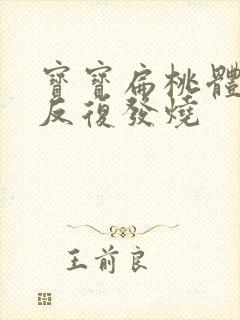 寶寶扁桃體
反復發燒
王前良